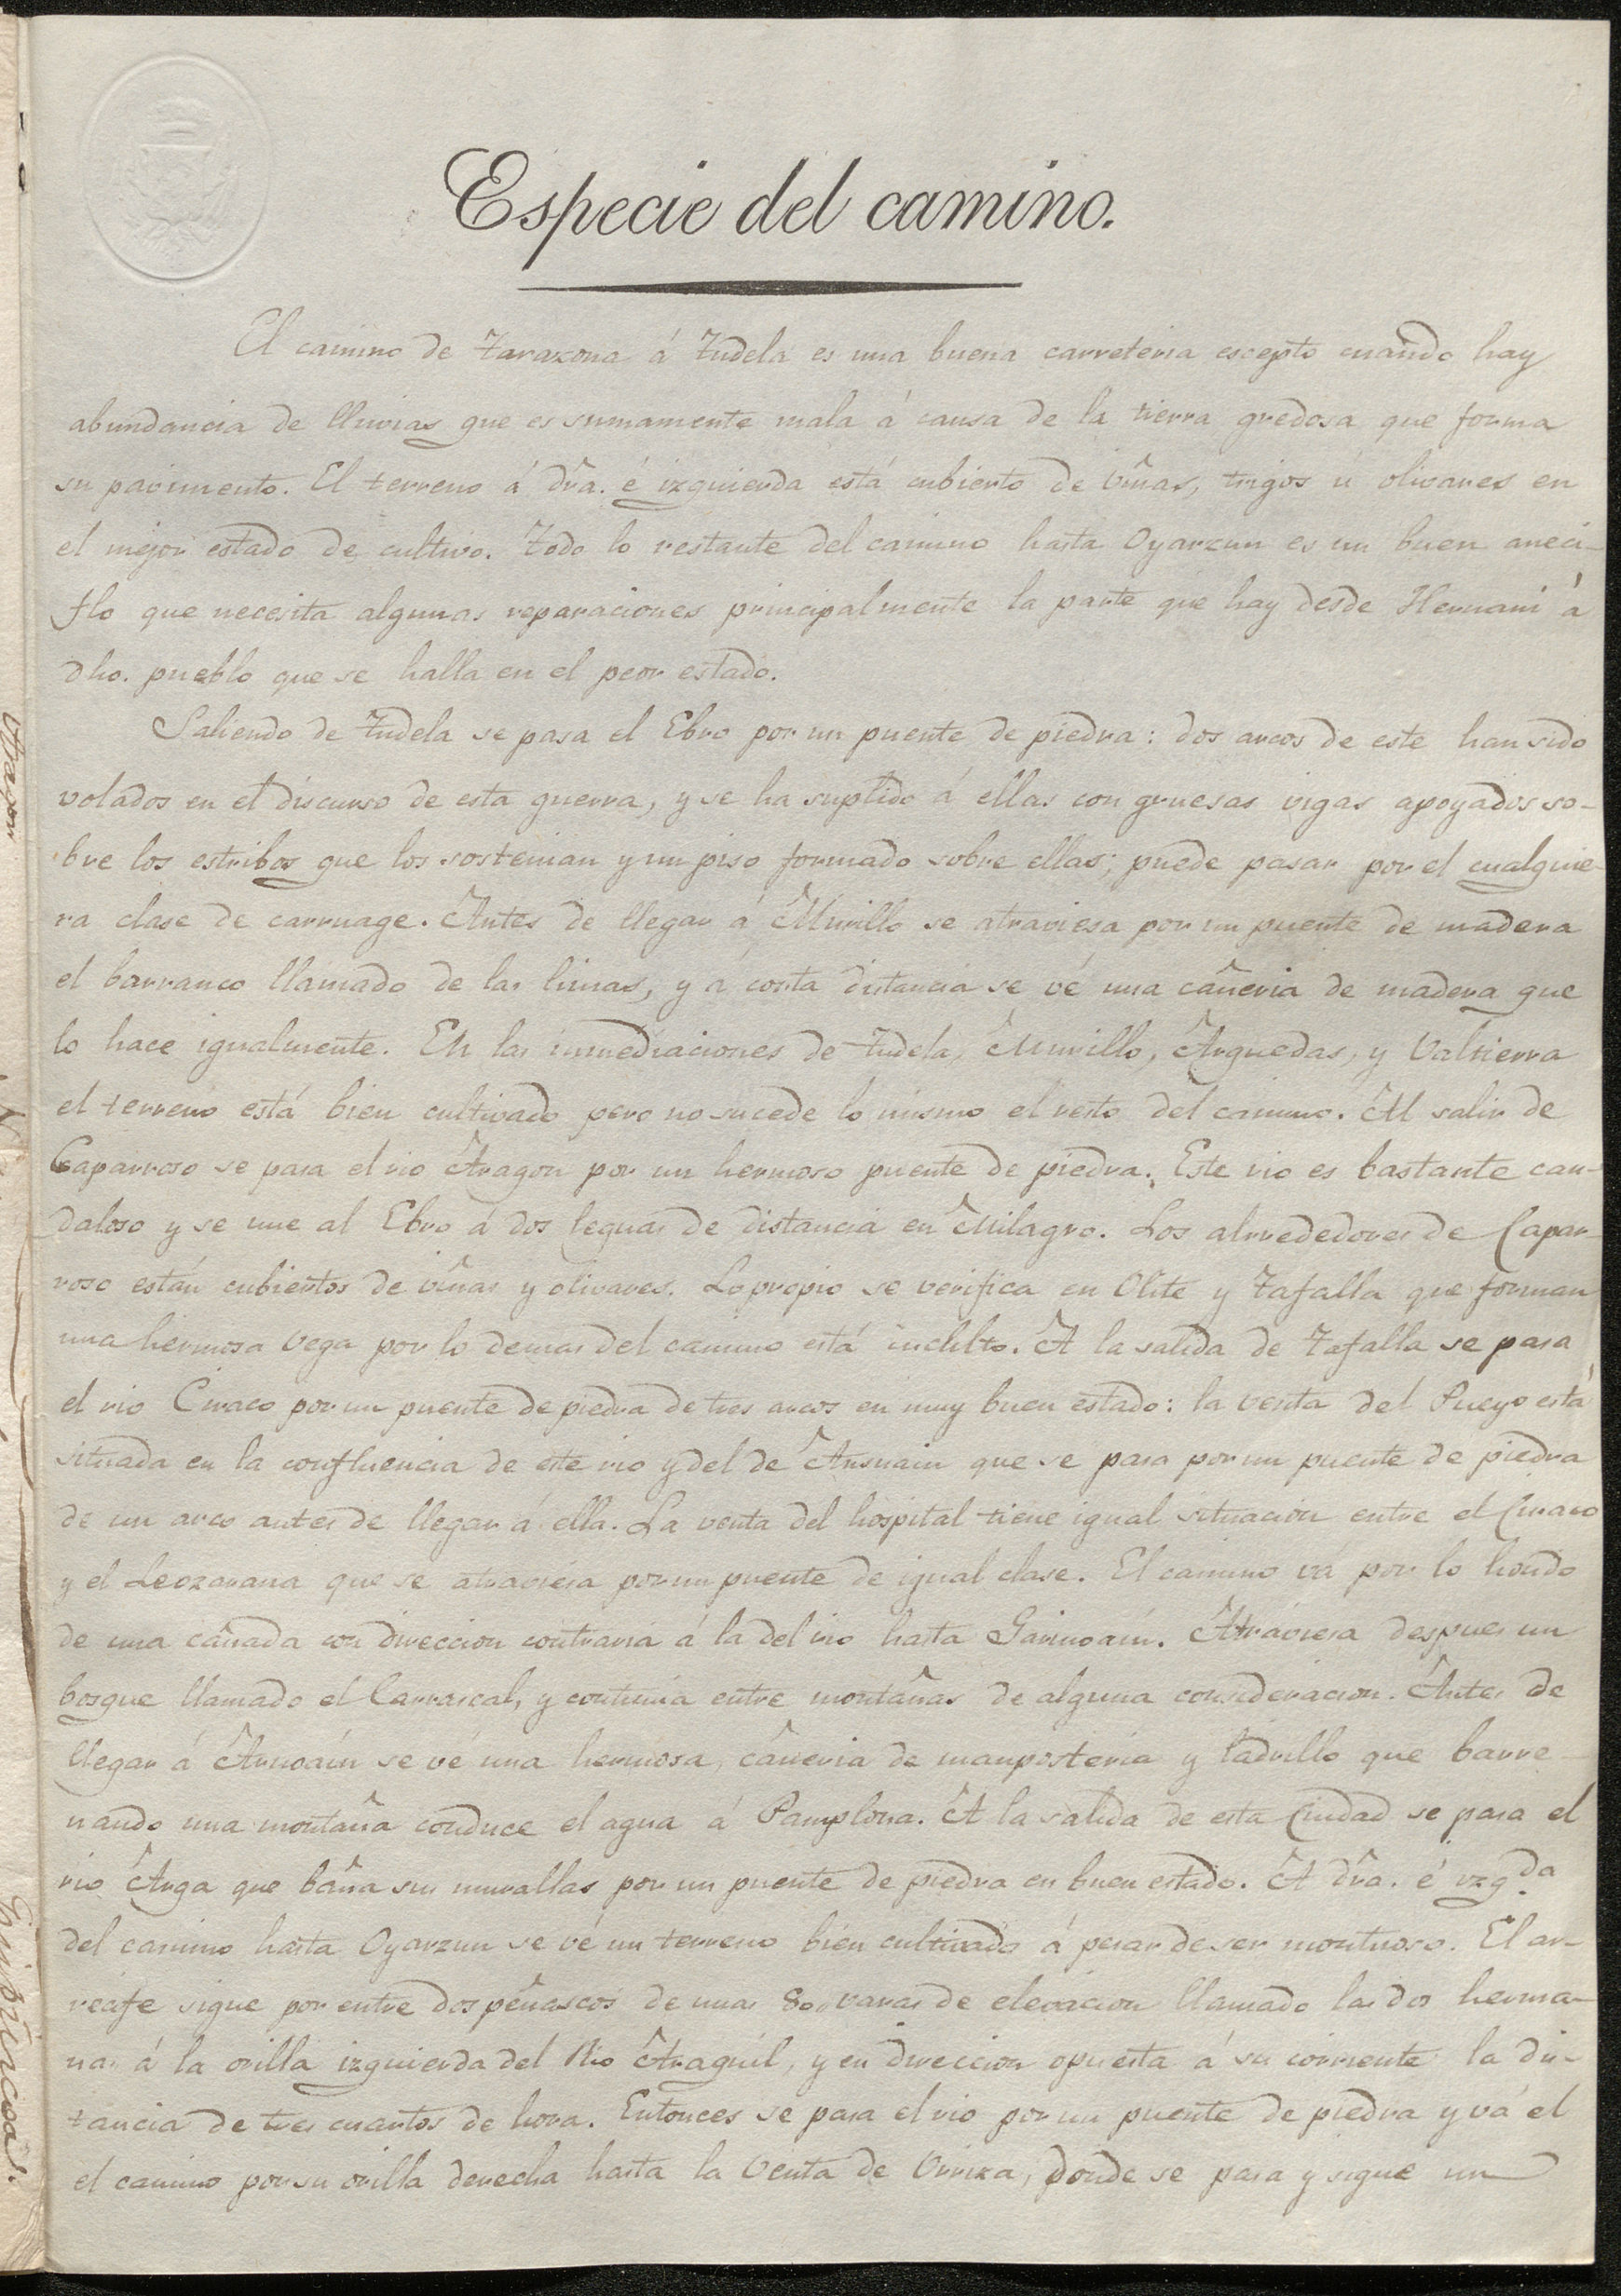 Especie del camino.
El camino de Tarazona á Tudela es una buena carreteria escepto cuando hay
abundancia de lluvias que es sumamente mala á causa de la tierra gredosa que forma
su pavimento. El terreno á dr̃a. é izquierda está cubierto de viñas, trigos ú olivares en
el mejor estado de cultivo. Todo lo restante del camino hasta Oyarzun es un buen areci-
flo que necesita algunas reparaciones principalmente la parte que hay desde Hernani á
dho. pueblo que se halla en el peor estado.
Saliendo de Tudela se pasa el Ebro por un puente de piedra: dos arcos de este han sido
volados en el discurso de esta guerra, y se ha suplido á ellas con gruesas vigas apoyados so-
bre los estribos que los sostenian y un piso formado sobre ellas; puede pasar por el cualquie-
ra clase de carruage. Antes de llegar á Murillo se atraviesa por un puente de madera
el barranco llamado de las limas, y á corta distancia se vé una cañeria de madera que
lo hace igualmente. En las inmediaciones de Tudela, Murillo, Arguedas, y Valtierra
el terreno está bien cultivado pero no sucede lo mismo el resto del camino. Al salir de
Caparroso se pasa el rio Aragon por un hermoso puente de piedra. Este rio es bastante cau-
daloso y se une al Ebro á dos leguas de distancia en Milagro. Los alrrededores de Capar-
roso están cubiertos de viñas y olivares. Lo propio se verifica en Olite y Tafalla que forman
una hermosa vega por lo demas del camino está inculto. A la salida de Tafalla se pasa
el rio Ciraco por un puente de piedra de tres arcos en muy buen estado: la venta del Pueyo está
situada en la confluencia de este rio y del de Arsuain que se pasa por un puente de piedra
de un arco antes de llegar á ella. La venta del hospital tiene igual situacion entre el Ciraco
y el Leozarana que se atraviesa por un puente de igual clase. El camino vá por lo hondo
de una cañada con direccion contraria á la del rio hasta Garinoain. Atraviesa despues un
bosque llamado el Carrascal, y continúa entre montañas de alguna consideracion. Antes de
llegar á Arnoaín se vé una hermosa, cañeria de mamposteria y ladrillo que barre-
nando una montaña conduce el agua á Pamplona. A la salida de esta Ciudad se pasa el
rio Arga que baña sus murallas por un puente de piedra en buen estado. A dr̃a. é yzq.da
del camino hasta Oyarzun se vé un terreno bien cultivado á pesar de ser montuoso. El ar-
recife sigue por entre dos peñascos de unas 800 varas de elevacion llamado las dos herma-
nas á la orilla izquierda del Rio Araguil, y en direccion opuesta á su corriente la dis-
tancia de tres cuartos de hora. Entonces se pasa el rio por un puente de piedra y vá el
el camino por su orilla derecha hasta la Venta de Urriza, donde se pasa y sigue un